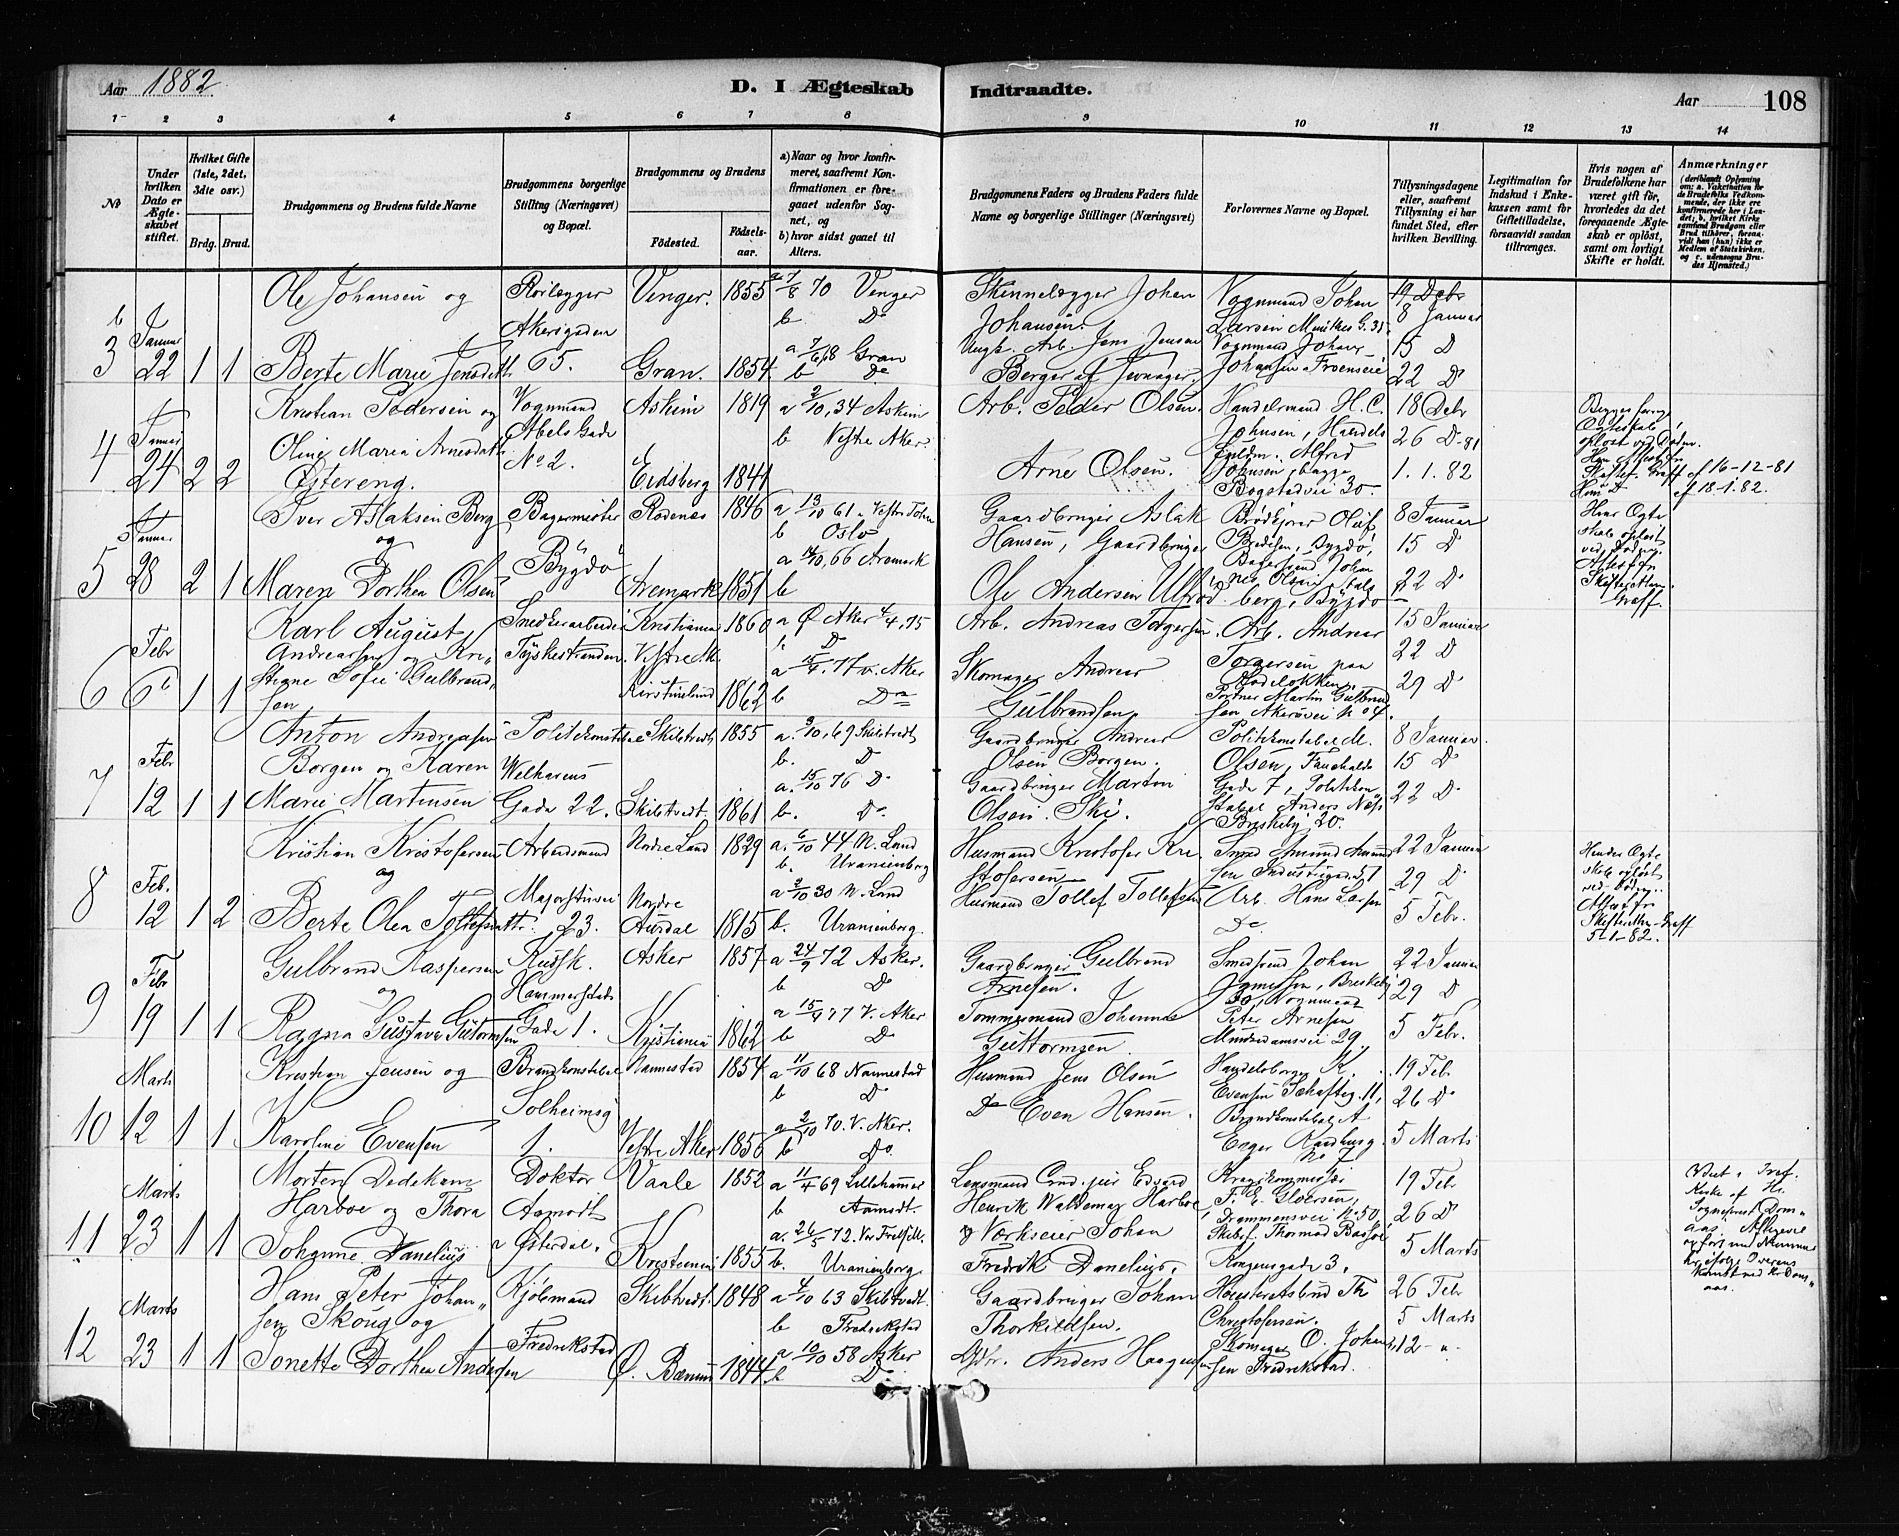 Aar 1882 D. I Ægteskab Indtraadte. Aar 108
1 2 3 4 5 6 7 8 9 10 11 12 13 14
No
Under hvilken Dato er Ægteskabet stiftet.
Hvilket Gifte (1ste, 2det, 3die osv.)
Brdg. Brud.
Brudgommens og Brudens fulde Navne
Brudgommens borgerlige Stilling (Næringsvei) og Bopæl.
Brudgommens og Brudens
Fødested. Fødselsaar.
a) Naar og hvor konfirmeret, saafremt Konfirmationen er foregaaet udenfor Sognet, og
b) hvor sidst gaaet til Alters.
Brudgommens Faders og Brudens Faders fulde Navne og borgerlige Stillinger (Næringsvei)
Forlovernes Navne og Bopæl.
Tillysningsdagene eller, saafremt Tillysning ei har fundet Sted, efter hvilken Bevilling.
Legitimation for Indskud i Enkekassen samt for Giftetilladelse, forsaavidt saadan tiltrænges.
Hvis nogen af Brudefolkene har været gift før, hvorledes da det foregaaende Ægteskab er opløst, samt om lovligt Skifte er holdt.
Anmærkninger
3 Januar 22 1 1
Ole Johansen og
Berte Marie Jensdatt.
Akersgaden
65.
Venger. 1855
Gran. 1854
a 7/8 70 Venger
b Do
a 7/6 68 Gran
b Do
Skinnelægger Johan
Johansen.
Ungk. Arb. Jens Jensen
Berger af Jevnager.
Vognmand Johan
Larsen Munkes G. 35
Vognmand Johan
Johansen
19 Debr
8 Januar
15 D
22 D
4 Januar 24 2 2
Kristian Pedersen og
Oline Maria Arnesdatt.
Østereng.
Vognmand
Abels Gade
No 2.
Askim 1819
Eidsberg 1841
a 2/10, 34 Askim
b Vestre Aker.
Arb. Peder Olsen.
Arne Olsen.
Handelsmand H. C.
Johnsen, Handels
Fuldm. Alfred
Johnsen, begge
Bogstadvei 30.
18 Debr
26 D-81
1. 1. 82
Begges forrige
Ægteskab
opløst ved Døden.
Han Attest fra
Skiftef. Graff af 16-12-81
Hun D af 18-1.82.
5 Januar 28 2 1
Iver Aslaksen Berg
og
Maren Dorthea Olsen
Bagermester
Bygdø
Rødenes 1846
Aremark 1851
a 13/10 61
b Oslo
a 14/10, 66 Aremark
b
Gaardbruger Aslak
Hansen, Gaardbruger
Ole Andersen
Brødkjører Olaf
Bredesen, Bygdø,
Bagersvend Johan
berg, Bygdø
8 Januar
15 D
22 D
Hans Ægte
skab opløst
ved Døden.
Attest fra
Skifteretten
Graff.
6 Febr 6 1 1
Karl August
Andreassen og Kri
stiane Sofie Gulbrand
sen
Snedkerarbeider
Tyskestranden
Kristiania 1860
Vestre Ak.
Kristianslund 1862
a Ø Aker 4/4, 75
b D
a 15/4. 77 v. Aker
b Do
Arb. Andreas Torgersen
Skomager Andreas
Gulbrandsen
Arb. Andreas
Torgersen paa
Portner Martin Gulbrand
sen Akersvei No 4.
15 Januar
22 D
29 D
7 Febr 12 1 1
Anton Andreasen
Borgen og Karen
Marie Martinsen
Politikonstabel
Welhavens
Gade 22.
Skibtvedt 1855
Skibtvedt. 1861
a. 9/10, 69 Skibtvedt
b. D
a. 15/10 76 D
b. Do
Gaardbruger Andreas
Olsen Borgen.
Gaardbruger Martin
Olsen. Ski.
Politikonstabel M.
Olsen, Fauchalds
Gade 7, Politikon
stabel Anders Næss
Briskeby 20.
8 Januar.
15 D
22 D
8 Feb. 12 1 2
Kristian Kristofersen
og
Berte Olea Tollefsdatt.
Arbeidsmand
Majorstuvei
23.
Nordre Land 1829
Nordre
Aurdal 1815
a. 6/10 44 N. Land
b. Uranienborg
a 2/10 30 N. Land
b. Uranienborg.
Husmand Kristofer Kri
stofersen
Husmand Tollef Tollefsen
Smed Amund Amund
sen Industrigad. 51
Arb. Hans Larsen
Do.
22 Januar
29 D
5 Febr.
Hendes Ægte
skab opløst
ved Døden.
Attest fr.
Skifteretten-Graff
5-1-82.
9 Febr 19 1 1
Gulbrand Kaspersen
og
Ragna Gustava Guttormsen
Kudsk.
Hammerstads
Gade 1.
Asker 1857
Kristiania 1862
a 24/9 72 Asker.
b D
a 15/4 77 V. Aker
b D
Gaardbruger Gulbrand
Arnesen.
Tømmermand Johannes
Guttormsen
Smedsvend Johan
Jonassen, Briskeby
30, Vognmand
Peter Arnesen
Munkedamsvei 29.
22 Januar
29 D
5 Febr.
10 Marts 12 1 1
Kristian Jensen og
Karoline Evensen
Brandkonstabel
Solheimsg
1.
Nannestad 1854
Vestre Aker 1856
a 11/10 68 Nannestad
b D
a 2/10 70. V. Aker.
b Do
Husmand Jens Olsen
Do Even Hansen.
Handelsborger K.
Evensen Schafteg. 11,
Brandkonstabel A
Enger Raadhusg.
No 7
19 Febr
26 D
5 Marts
11 Marts 23 1 1
Morten Dedekam
Harboe og Thora
Johanne Danelius
Doktor
Aamodt
Østerdal.
Vaale 1852
Kristiania 1855
a 11/4 69 Lillehammer
b Aamodt.
a. 26/5 72. Vor Frelsers
b. Uranienborg.
Lensmand Cand. jur Edvard
Henrik Waldemar Harboe
Værkseier Johan
Fredrik Danelius.
Krigskommissær
F. E. Gloersen,
Drammensvei No 50,
Skibsf. Thormod Bassøe
Kongensgade 3.
19 Febr
26 D
5 Marts
Viet i Tref.
Kirke af Hr.
Sogneprest Dom
aas. Afgivet
12 Marts 23 1 1
Hans Peter Johan
sen Skoug og
Jonette Dorthea Andersen
Kjøbmand
Fredrikstad
Skibtvedt. 1848
Ø. Bærum 1844
a 4/10 63 Skibtvedt.
b Fredrikstad
a 10/10 58 Asker
b D
Gaardbruger Johan
Thorkildsen.
Gdbr. Anders Haagensen
Th
Christofersen.
Skomager O. Johan
sen Fredrikstad.
26 Febr
5 Marts
12 - "